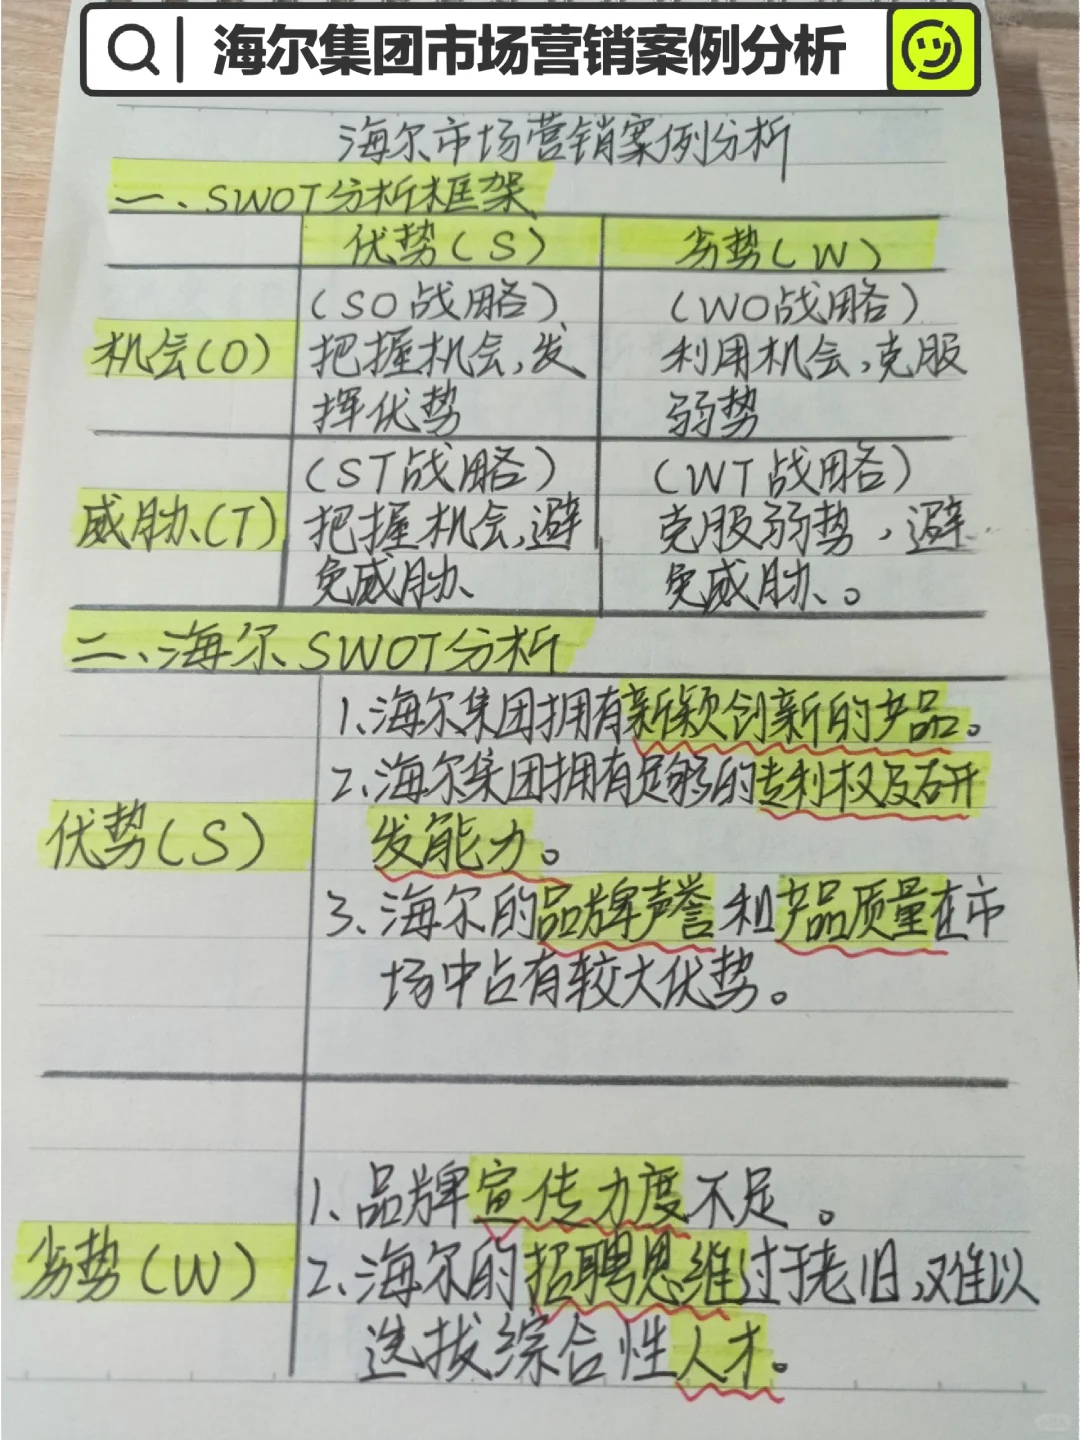 海尔集团市场营销案例分析
海尔市场营销案例分析
一、SWOT分析框架
优势(S) 劣势(W)
机会(O)
(SO战略)
把握机会,发
挥优势
(WO战略)
利用机会,克服
弱势
威胁(T)
(ST战略)
把握机会,避
免威胁
(WT战略)
克服弱势,避
免威胁。
二、海尔SWOT分析
优势(S)
1.海尔集团拥有新颖创新的产品。
2.海尔集团拥有足够的专利权及研
发能力。
3、海尔的品牌声誉和产品质量在市
场中占有较大优势。
劣势(W)
1、品牌宣传力度不足。
2、海尔的招聘思维过于老旧,难以
选拔综合性人才。